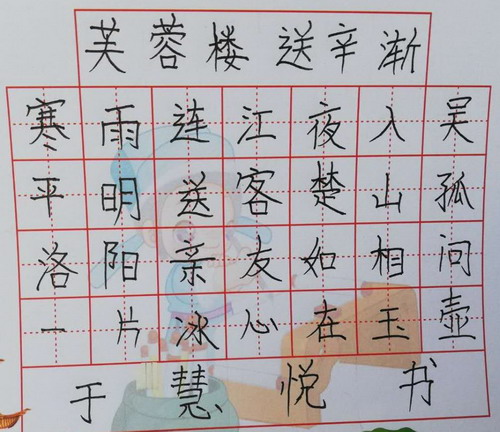 芙蓉楼送辛渐
寒雨连江夜入吴
平明送客楚山孤
洛阳亲友如相问
一片冰心在玉壶
于慧悦书